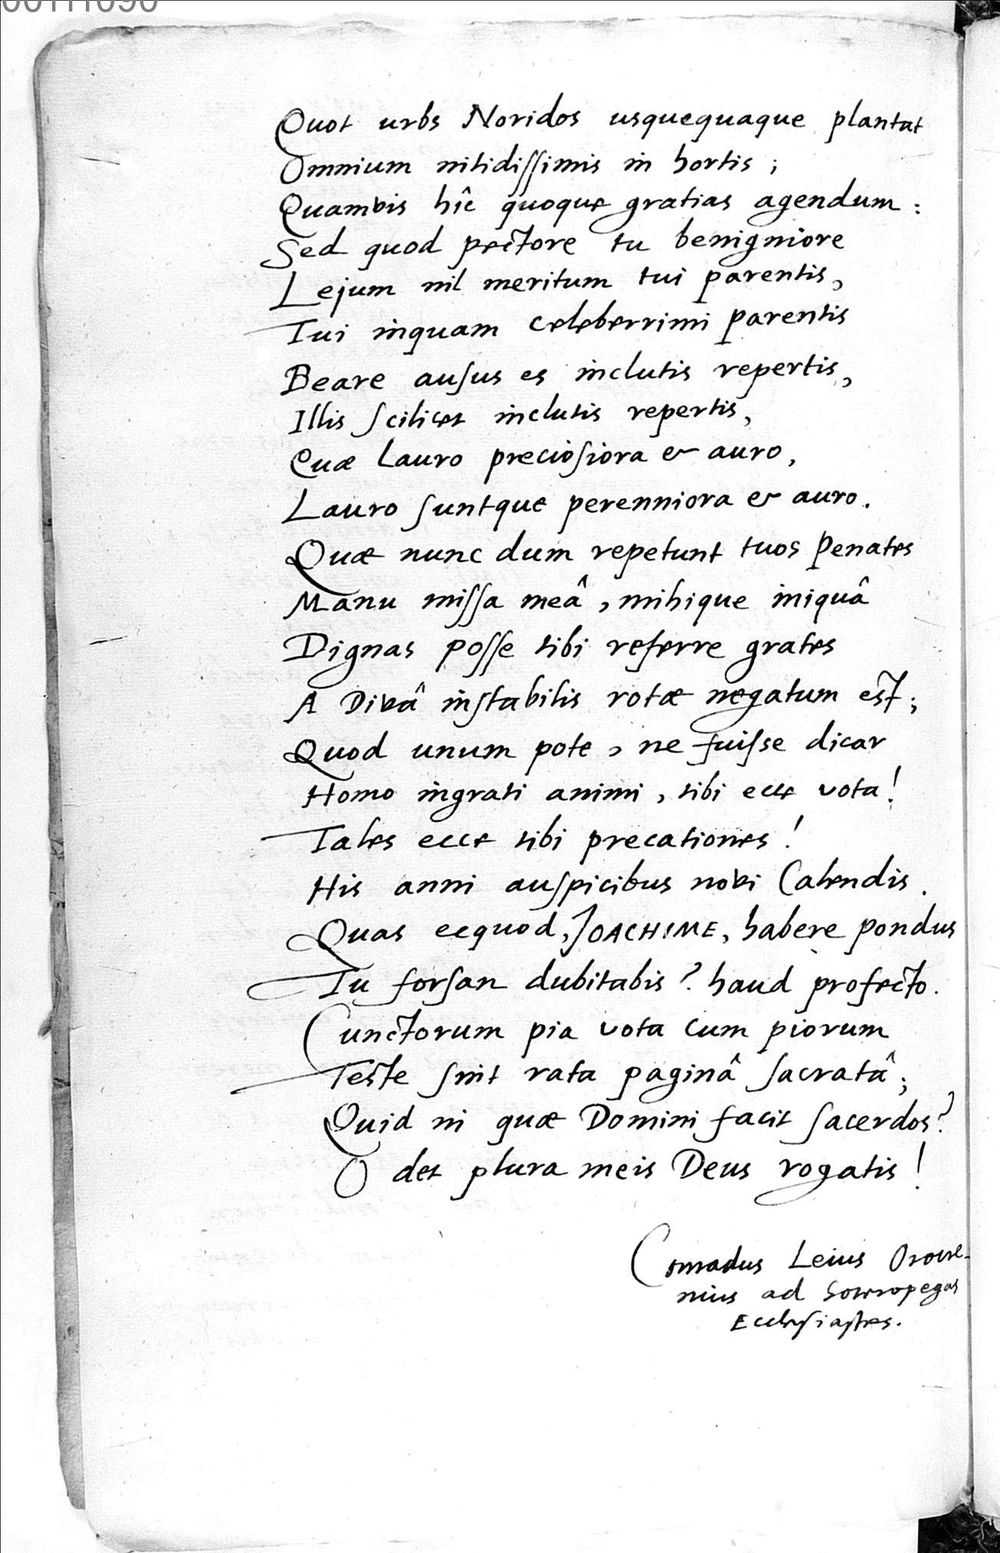 Quot urbs Noridos usquequaque plantat
Omnium nitidissimis in hortis ;
Quamvis hîc quoque gratias agendum :
Sed quod pectore tu benigniore
Lejum nil meritum tui parentis,
Tui inquam celeberrimi parentis
Beare ausus es inclutis repertis,
Illis scilicet inclutis repertis,
Quæ Lauro preciosiora et auro,
Lauro suntque perenniora et auro.
Quæ nunc dum repetunt tuos Penates
Manu missa meâ, mihique iniquâ
Dignas posse tibi referre grates
A Divâ instabilis rotæ negatum est ;
Quod unum pote, ne fuisse dicar
Homo ingrati animi, tibi ecce vota !
Tales ecce tibi precationes !
His anni auspicibus novi Calendis.
Quas ecquod, JOACHIME, habere pondus
Tu forsan dubitabis? haud profecto.
Cunctorum pia vota cum piorum
Teste sint rata paginâ sacratâ ;
Quid ni quæ Domini facit sacerdos?
O det plura meis Deus rogatis !
Conradus Leius
nius ad
Ecclesiastes.